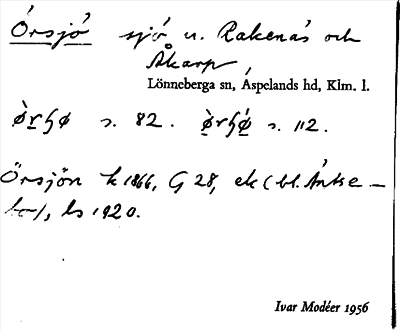 Örsjö sjö n. Rakenäs och
Åkarp,
Lönneberga sn, Aspelands hd, Klm. l.
s. 82. s. 112.
Örsjön k 1866, G 28, ek (bl. Änke-
), ls 1920.
Ivar Modéer 1956